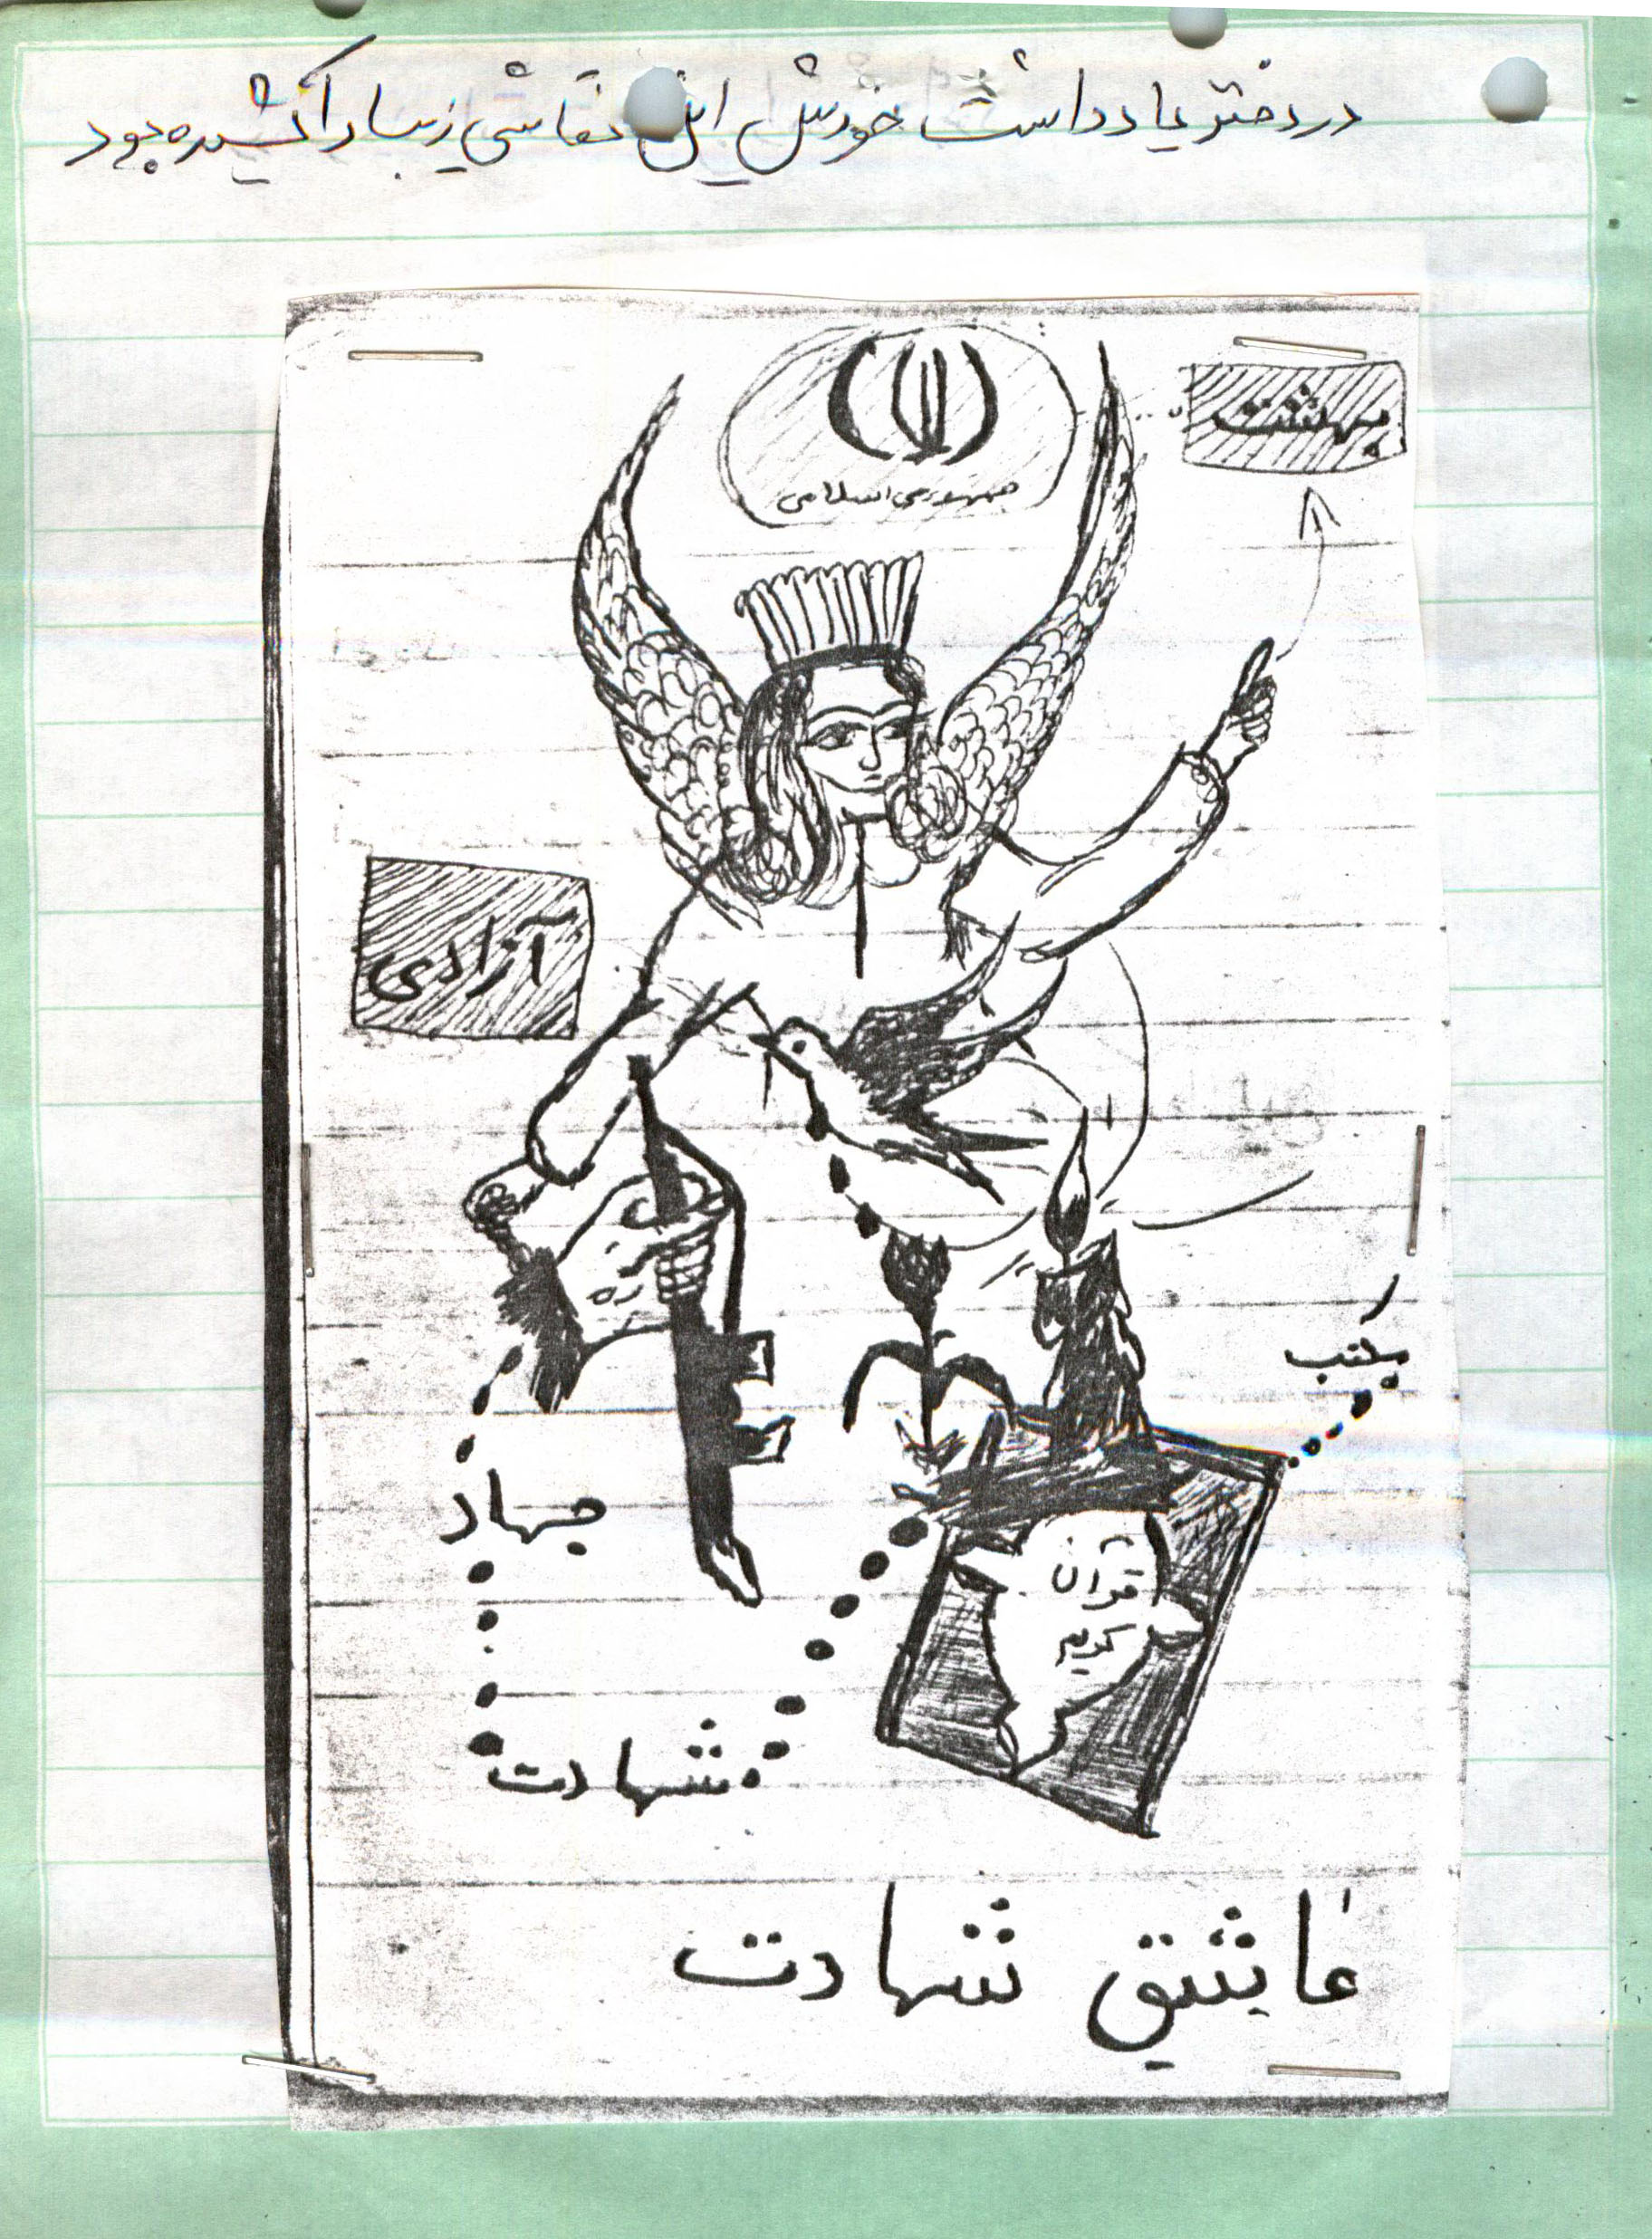 در دفتر یادداشت خودش این نقاشی زیبا را کشیده بود
جمهوری اسلامی
بهشت
آزادی
راه
مکتب
جهاد
قرآن
کریم
شهادت
عاشق شهادت